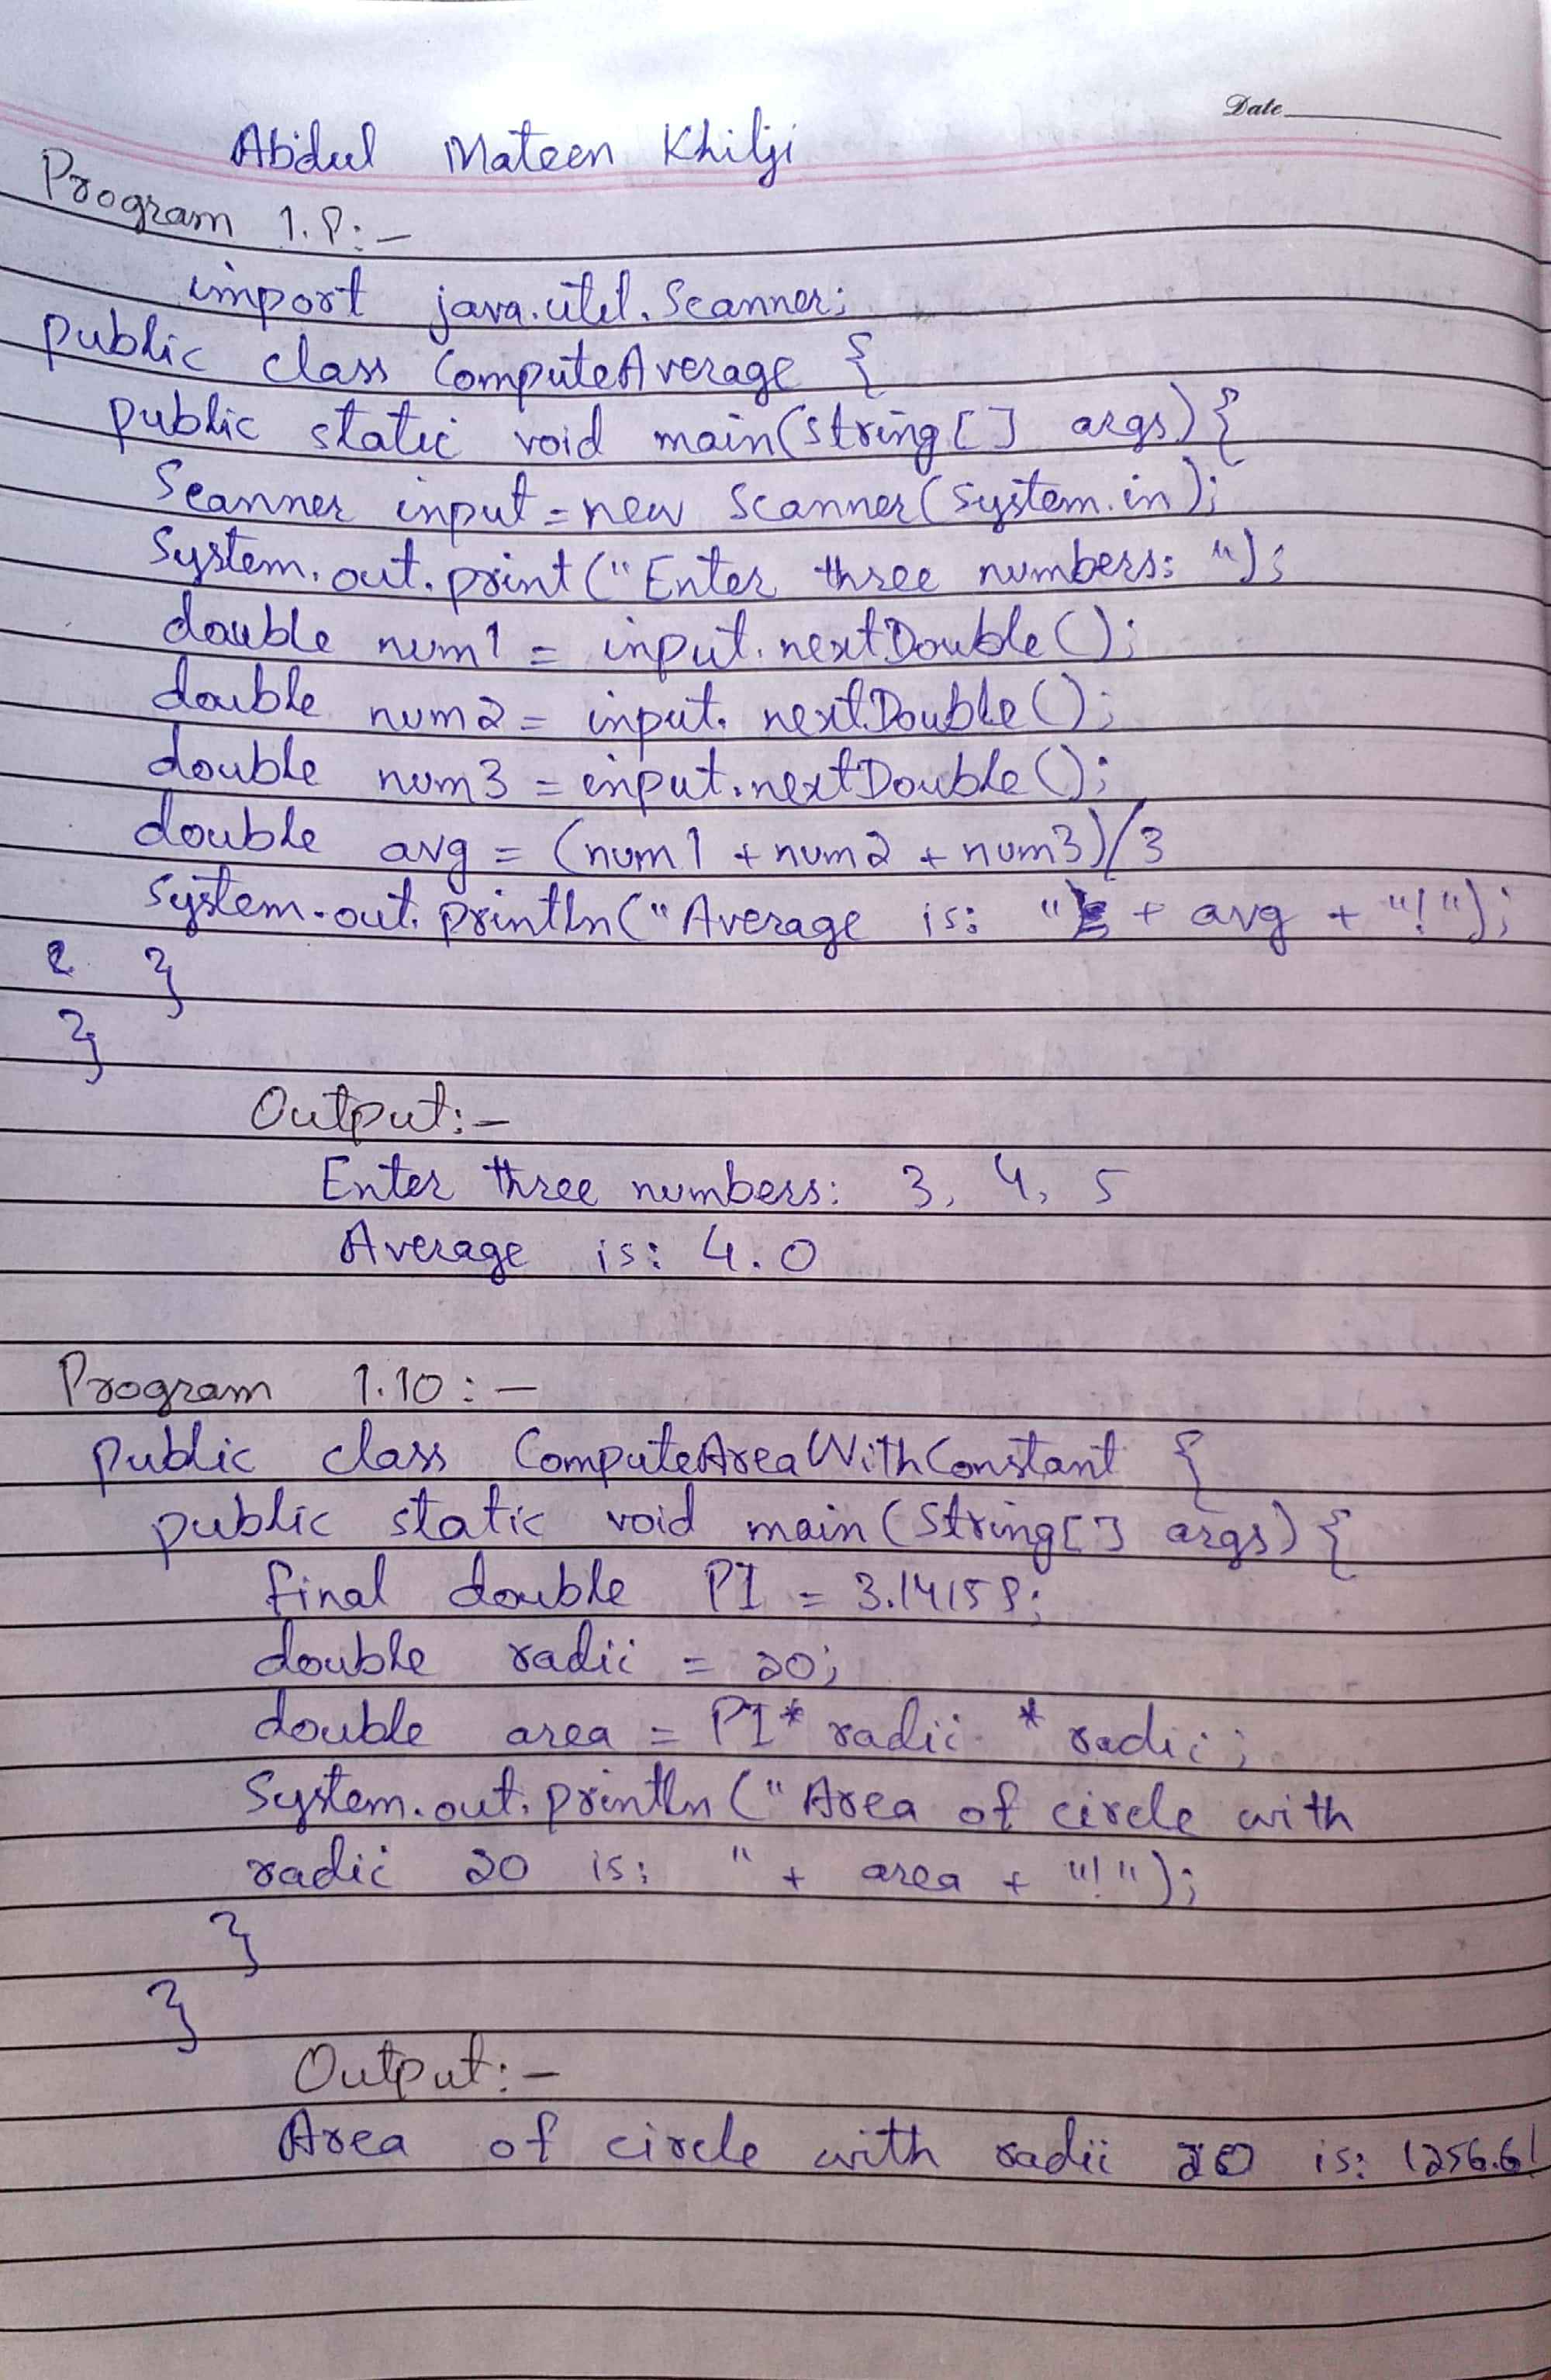 Date
Abdul Mateen Khilji
Program 1.9:-
import java.util.Scanner;
public class ComputeAverage {
public static void main(String[] args){
Scanner input = new Scanner(System.in);
System.out.print("Enter three numbers: ");
double num1 = input.nextDouble();
double num2 = input.nextDouble();
double num3 = input.nextDouble();
double avg = (num1 + num2 + num3)/3
System.out.println("Average is: " + avg + "!");
}
}
Output:-
Enter three numbers: 3, 4, 5
Average is: 4.0
Program 1.10:-
public class ComputeAreaWithConstant {
public static void main(String[] args){
final double PI = 3.14159;
double radii = 20;
double area = PI * radii * radii;
System.out.println("Area of circle with
radii 20 is: " + area + "!");
}
}
Output:-
Area of circle with radii 20 is: 1256.6!